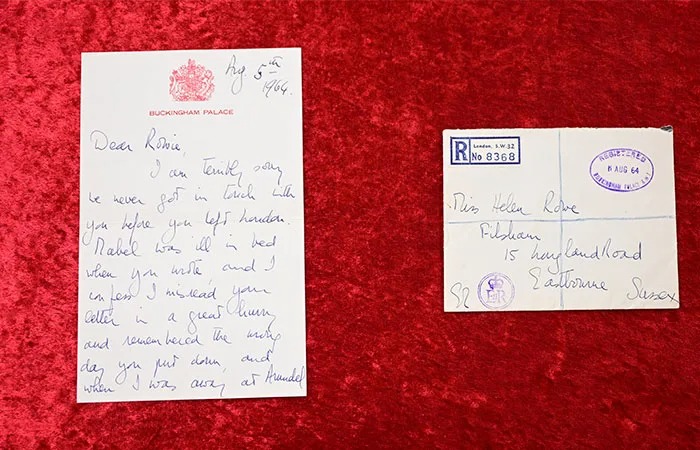 Aug. 5th
1964.
BUCKINGHAM PALACE
Dear Rowie,
I am terribly sorry
we never got in touch with
you before you left London.
Mabel was ill in bed
when you wrote, and I
confess I misread your
letter in a great hurry
and remembered the wrong
day you put down, and
when I was away at Arundel
R
London, S.W.32
No 8368
REGISTERED
AUG 64
BUCKINGHAM PALACE S.W.1
Miss Helen Rowe
Filsham
15 Road
Eastbourne
Sussex
E R